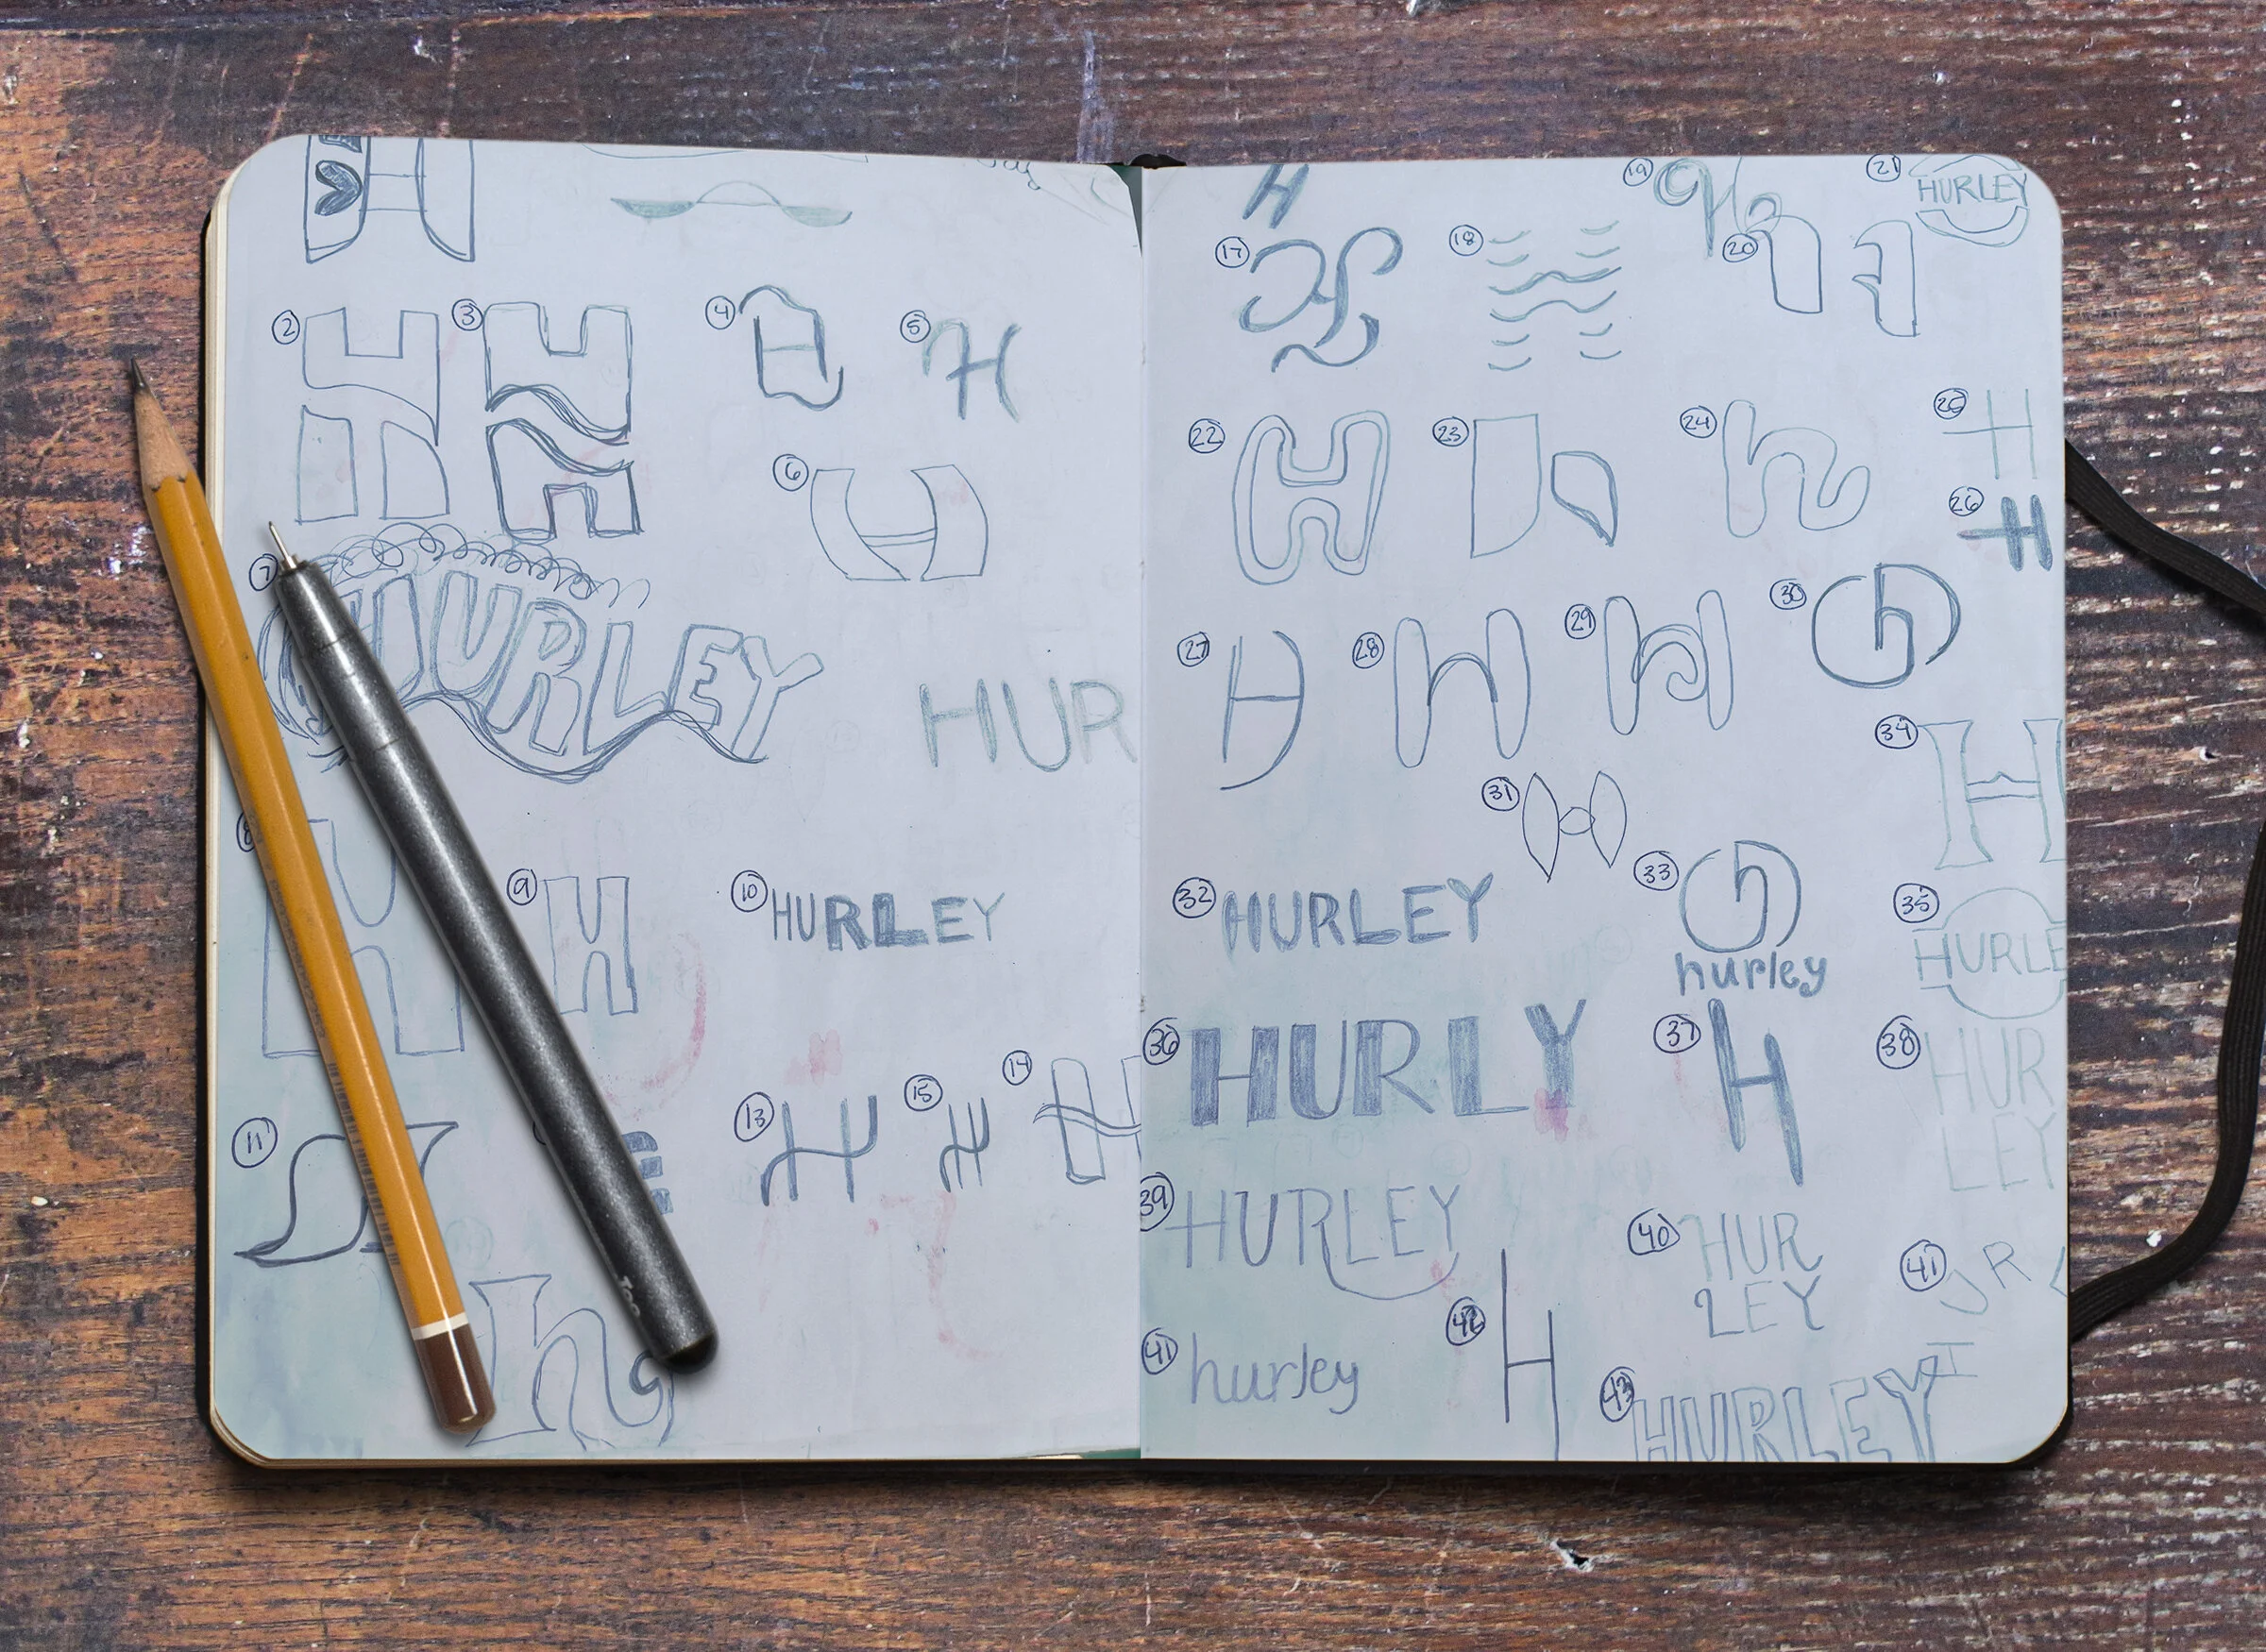 2
3
4
5 H
6
7 HURLEY
HUR
8
9 H
10 HURLEY
11
13 H
15 H
14 H
h
H
17 H
18
19
20
21 HURLEY
22 H
23 h
24 h
25 H
26 H
27 H
28 H
29
30 h
31 H
32 HURLEY
33 h
hurley
34 H
35 HURLE
36 HURLY
37 H
38 HUR
LEY
39 HURLEY
40 HUR
LEY
41 J R
41 hurley
42 H
43 HURLEY